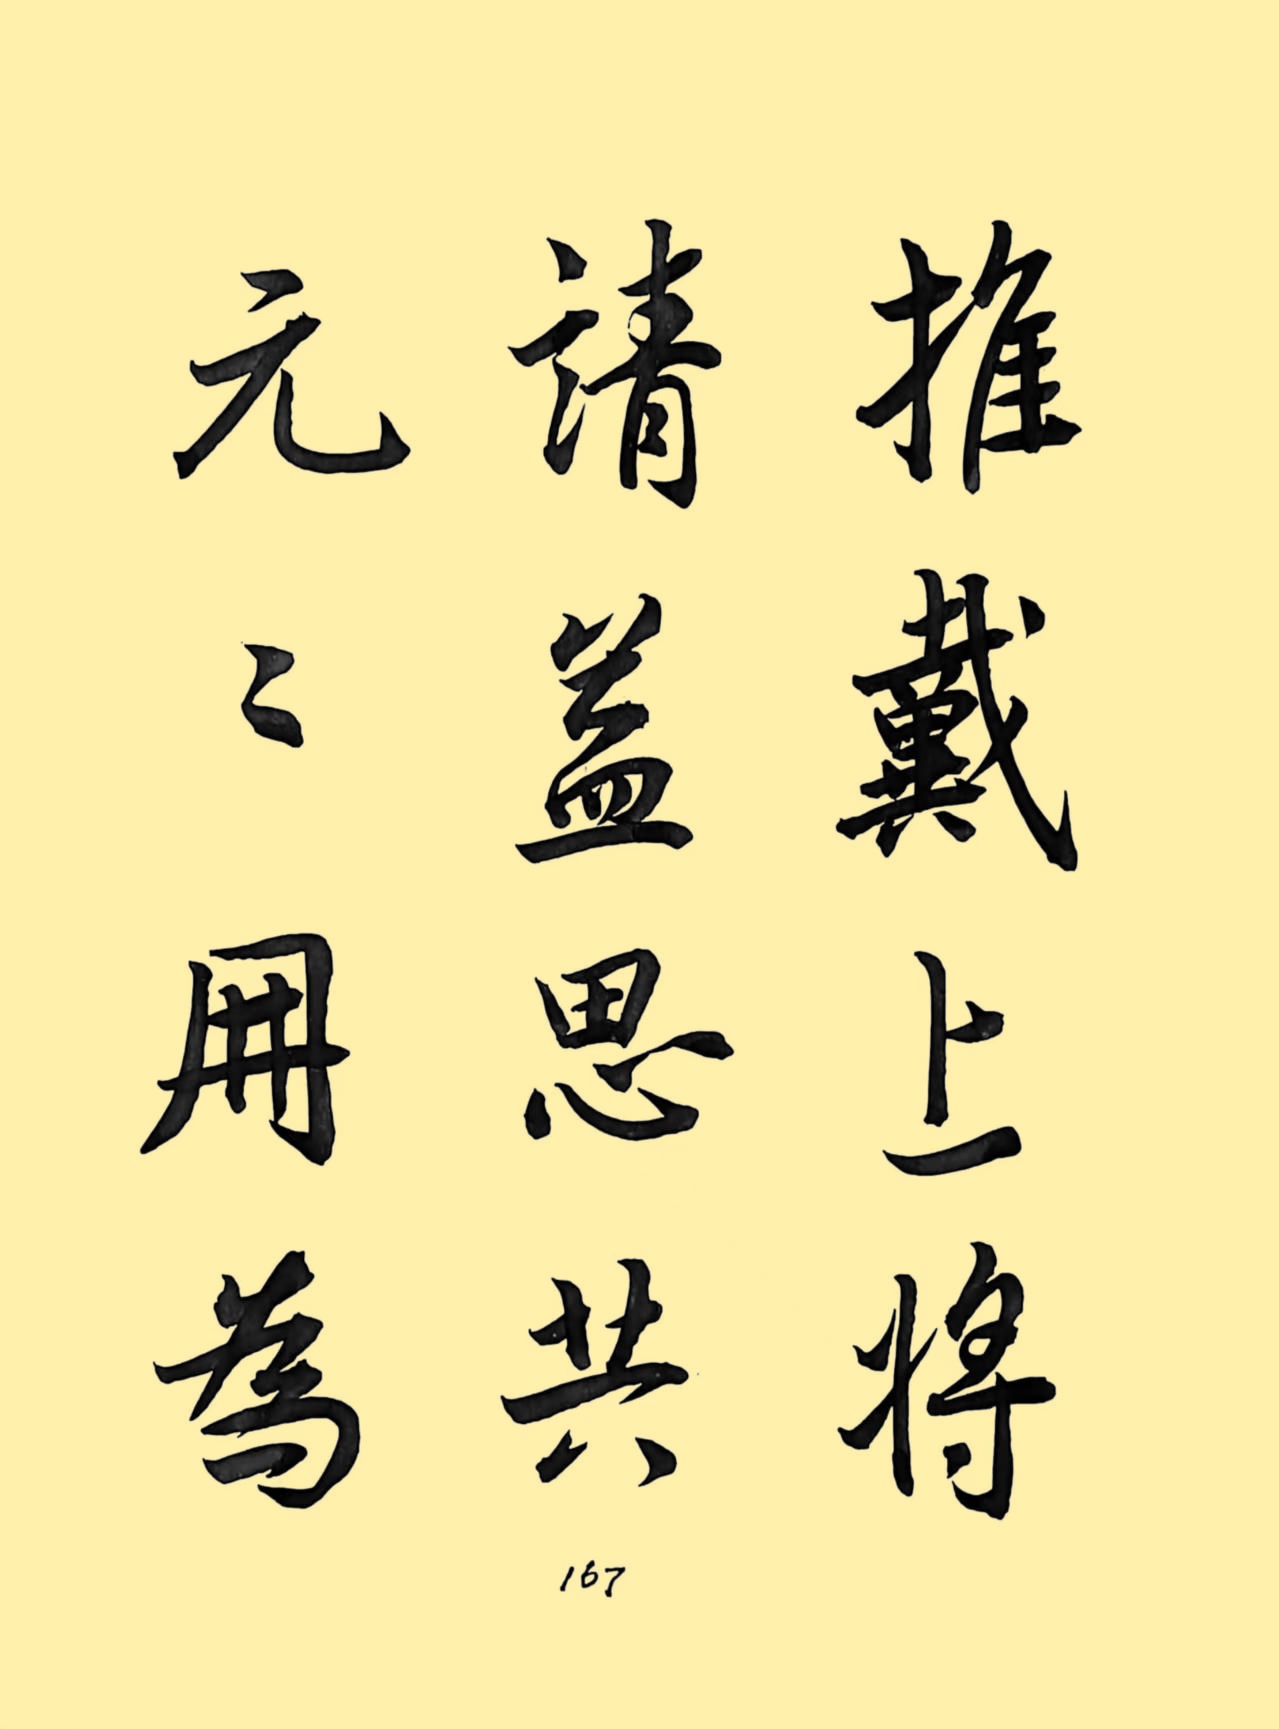 推戴上将
請益思共
元〻用為
167